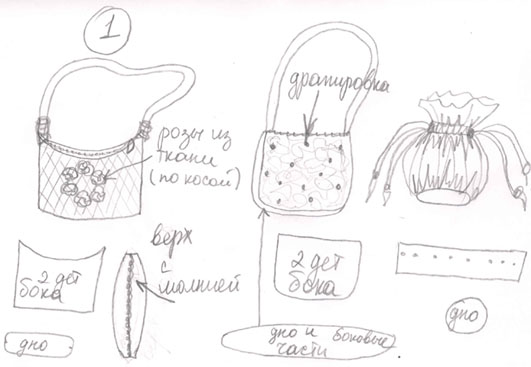 1
розы из
ткани
(по косой)
драпировка
верх
с
молнией
2 дет
бока
дно
2 дет
бока
дно и боковые
части
дно